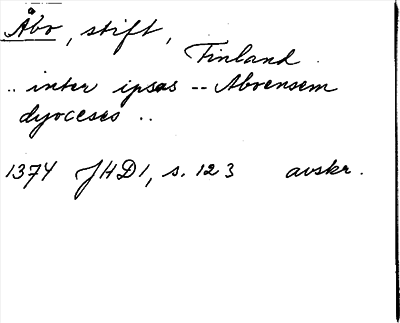 Åbo, stift,
Finland.
.. inter ipsas -- Aboensem
dyoceses ..
1374 JHD1, s. 123 avskr.